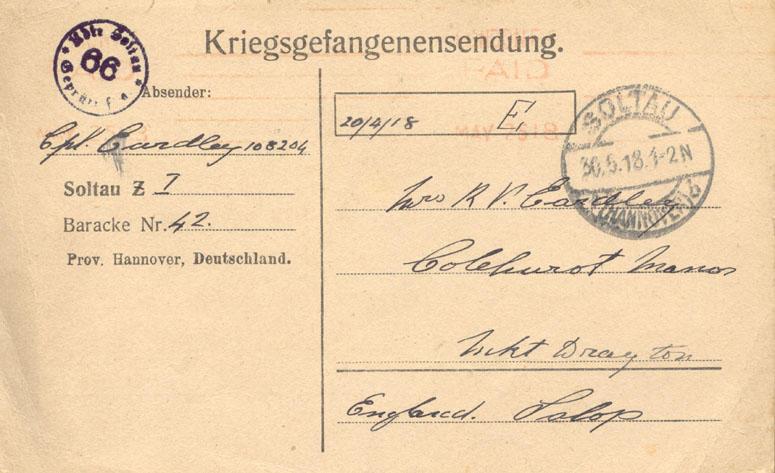 Kriegsgefangenensendung.
66
Soltau
Geprüft
Absender:
Cpl. Eardley 108204
Soltau Z I
Baracke Nr. 42.
Prov. Hannover, Deutschland.
20/4/18 E,
SOLTAU
30.5.18.1-2N
(HANNOVER) b
Mrs R V. Eardley
Colehurst Manor
Mkt Drayton
England. Salop